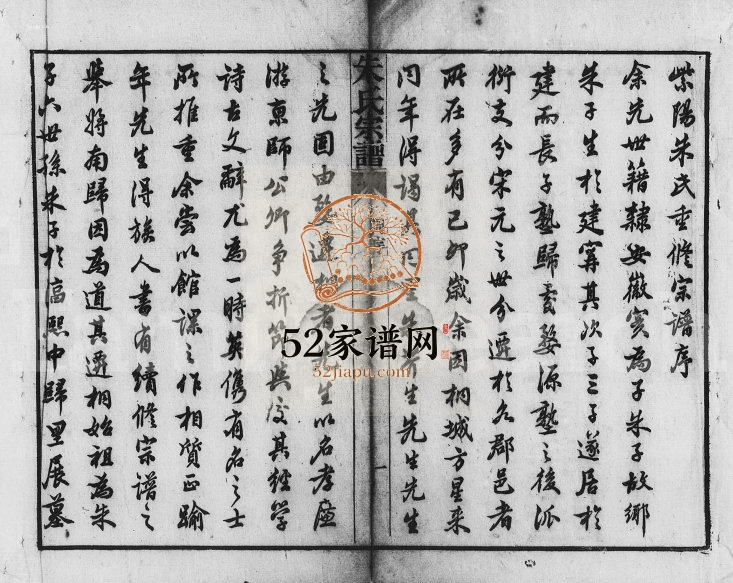 紫陽朱氏重修宗譜序
余先世籍隸安徽實為子朱子故鄉
朱子生於建寧其次子三子遂居於
建而長子塾歸婺源塾之後派
衍支分宋元之世分遷於各郡邑者
所在多有己卯歲余因桐城方星来
同年得謁 生先生先生
朱氏宗譜
一
之先固由 遷 者 生以名孝廉
游京師公卿争折節與交其經學
詩古文辭尤為一時英儁有名之士
所推重余嘗以館課之作相質正踰
年先生得族人書有續修宗譜之
舉將南歸因為道其遷桐始祖為朱
子六世孫朱子於高熙中歸里展墓
52家谱网
52jiapu.com